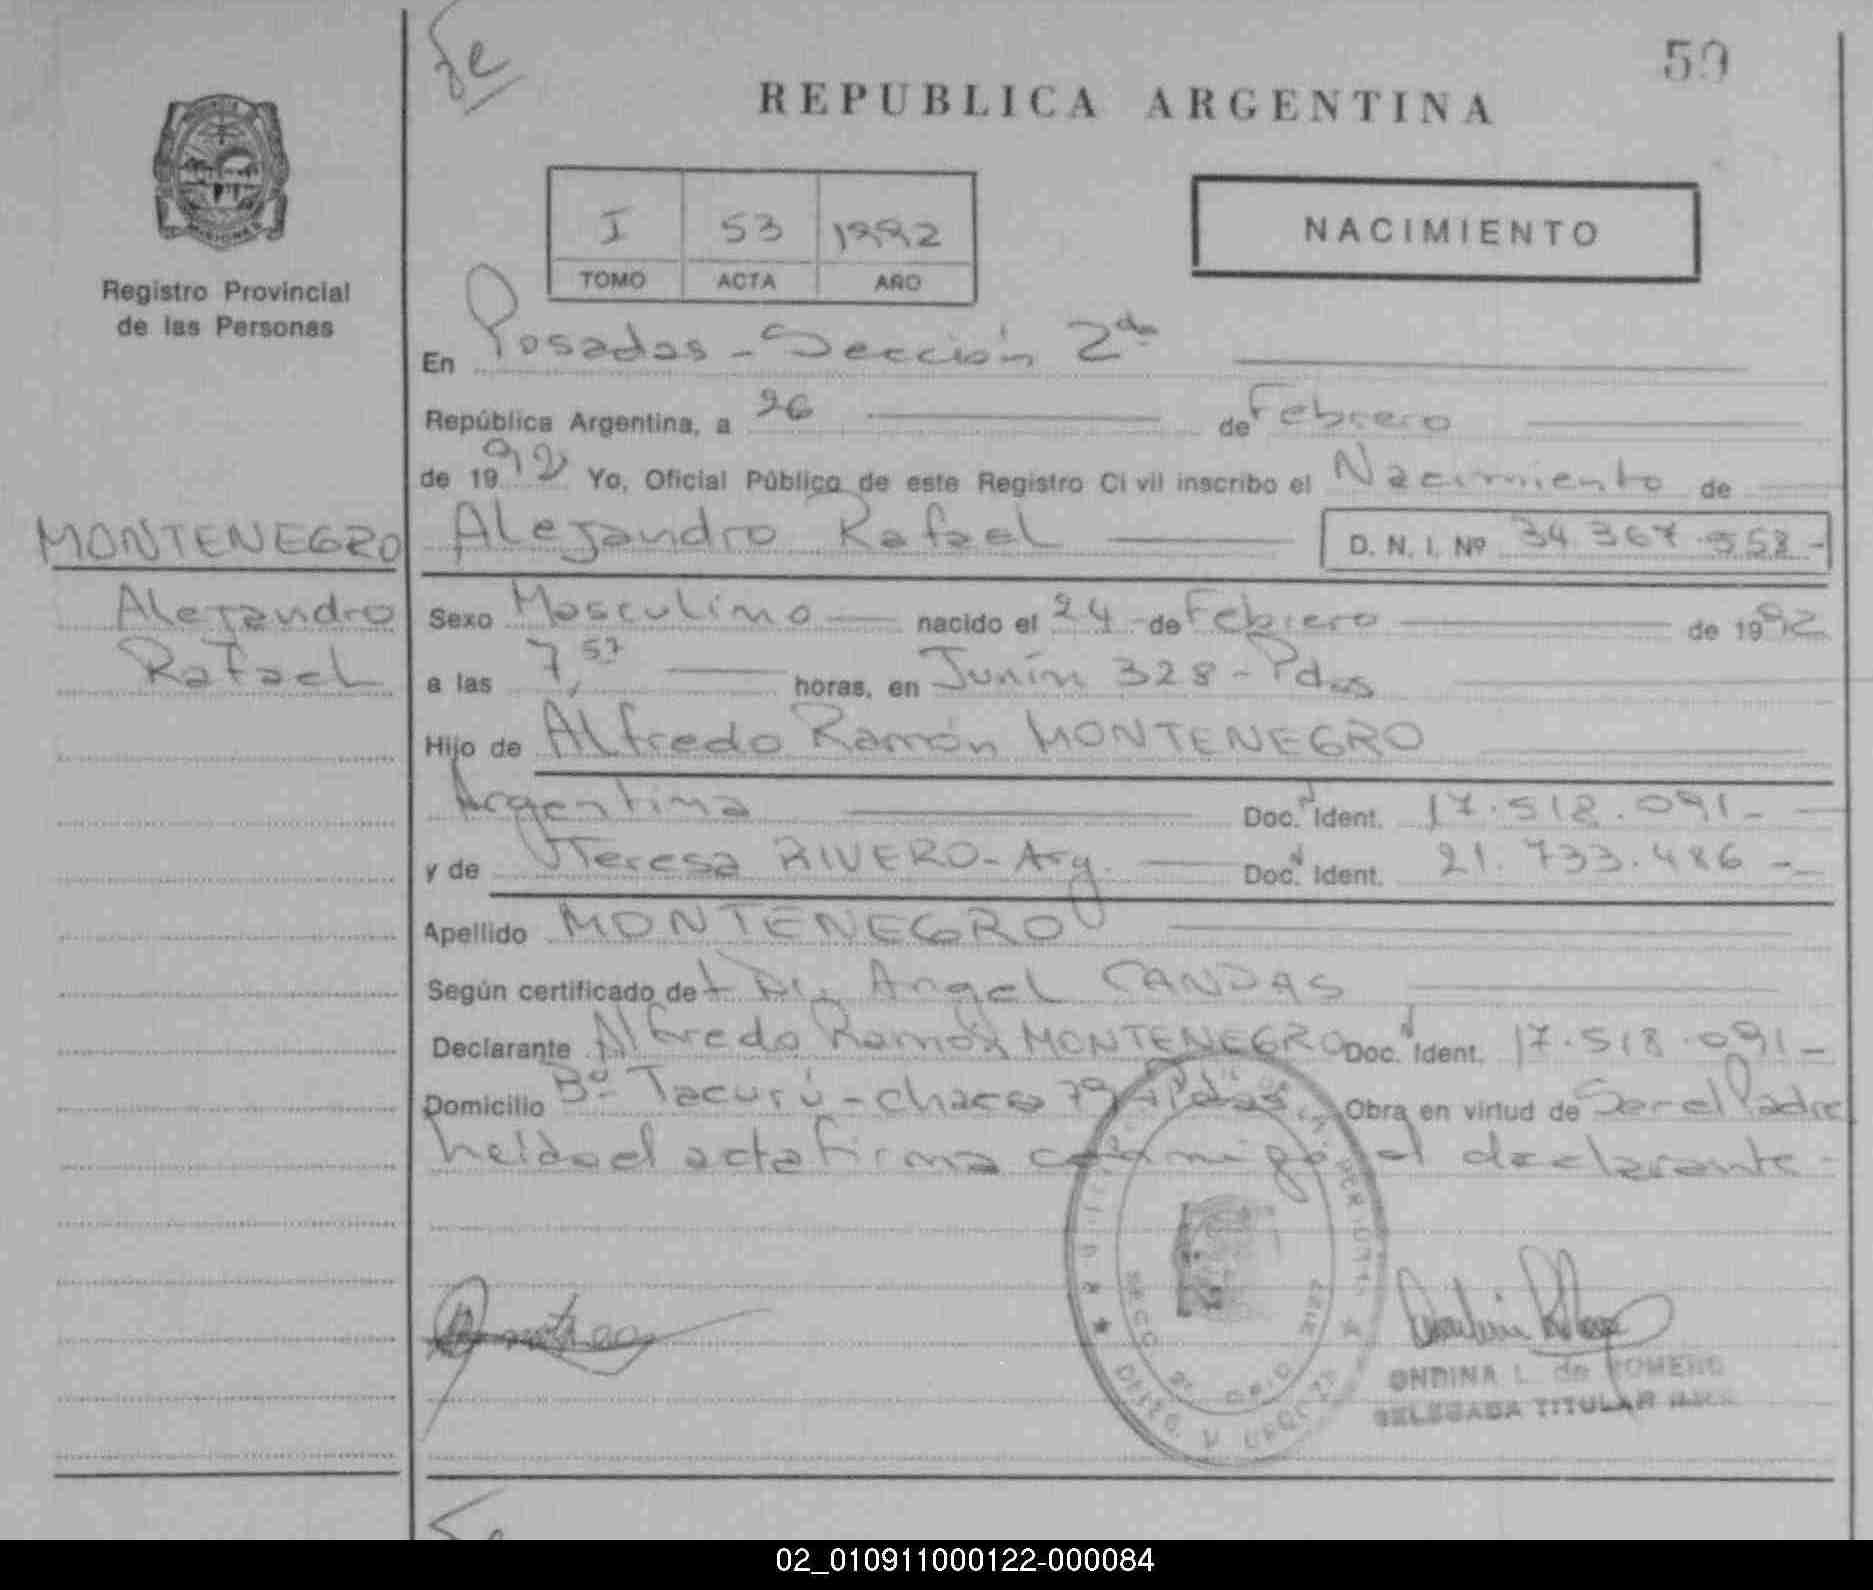 50
REPUBLICA ARGENTINA
I 53 1992
TOMO ACTA AÑO
NACIMIENTO
MISIONES
Registro Provincial
de las Personas
En Posadas - Sección 2da
República Argentina, a 26 de Febrero
de 1992 Yo, Oficial Público de este Registro Civil inscribo el Nacimiento de
MONTENEGRO
Alejandro Rafael D. N. I. Nº 34.367.558-
Alejandro
Rafael
Sexo Masculino nacido el 24 de Febrero de 1992
a las 7,57 horas, en Junín 328 - Pdas
Hijo de Alfredo Ramón MONTENEGRO
Argentina Doc. Ident. 17.518.091-
y de Teresa RIVERO - Arg. Doc. Ident. 21.733.486-
Apellido MONTENEGRO
Según certificado de Dr. Angel CANDAS
Declarante Alfredo Ramón MONTENEGRO Doc. Ident. 17.518.091-
Domicilio Bº Tacurú - chacra 79 - Pdas. Obra en virtud de Ser el Padre
leída el acta firma conmigo el declarante-
ONDINA L. de ROMERO
DELEGADA TITULAR
02_010911000122-000084